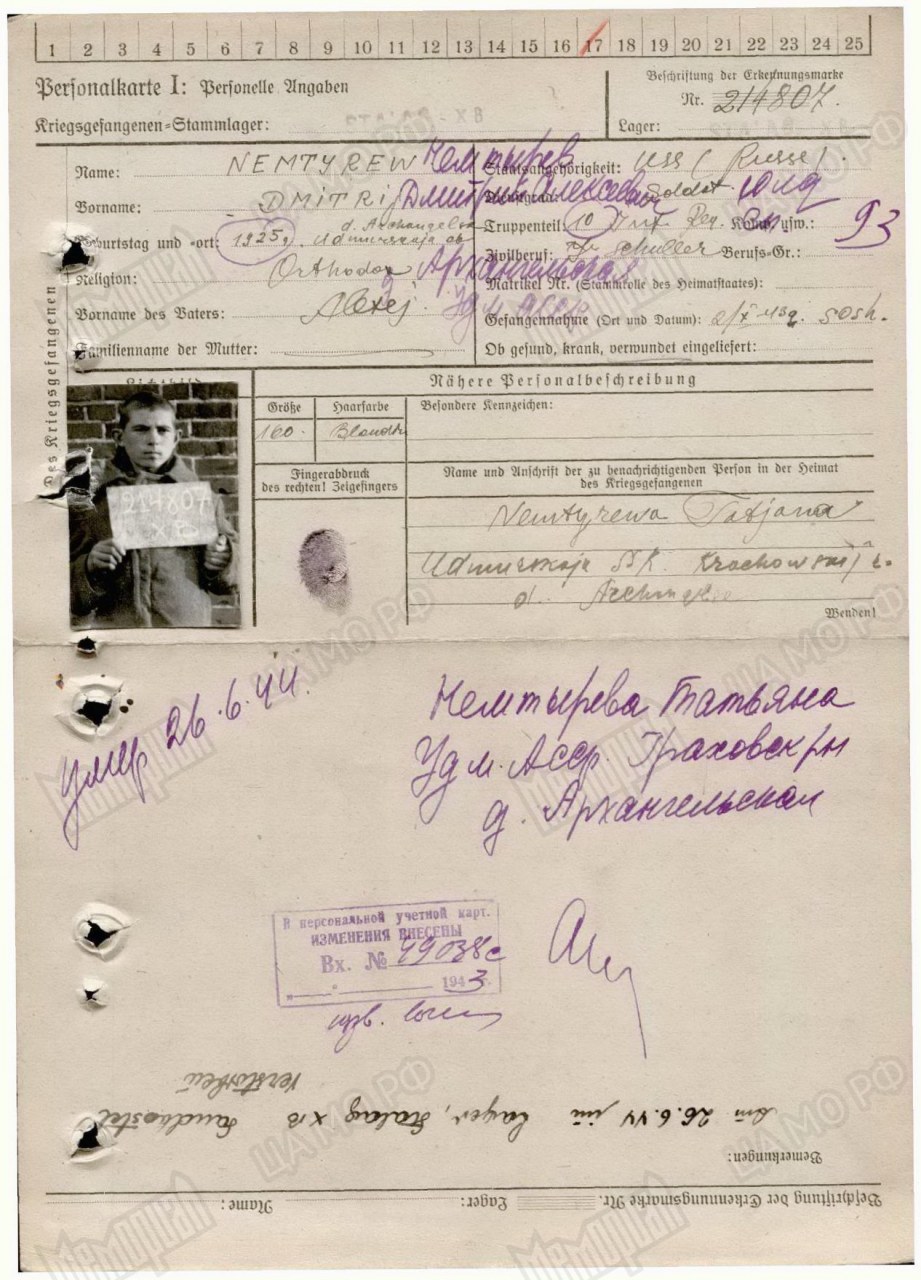 1 2 3 4 5 6 7 8 9 10 11 12 13 14 15 16 17 18 19 20 21 22 23 24 25
Personalkarte I: Personelle Angaben
Beschriftung der Erkennungsmarke
Nr. 214807.
Kriegsgefangenen-Stammlager: STALAG XB
Lager: STALAG XB
Des Kriegsgefangenen
Name: NEMTYREW Немтырев
Staatsangehörigkeit: USS (Russe).
Vorname: DMITRIJ Дмитрий Алексеевич
Dienstgrad: Soldat
Truppenteil: 10 Inf. Reg. Komp. usw.: 93
Geburtstag und -ort: 1925, d. Archangelsk Udmurskaja
Zivilberuf: Schüller Berufs-Gr.:
Religion: Orthodox Архангельская
Matrikel Nr. (Stammrolle des Heimatstaates):
Vorname des Vaters: Alexej. Удм АССР
Gefangennahme (Ort und Datum):
Familienname der Mutter:
Ob gesund, krank, verwundet eingeliefert:
Nähere Personalbeschreibung
Größe Haarfarbe Besondere Kennzeichen:
160
214807
XB
Fingerabdruck
des rechten! Zeigefingers
Name und Anschrift der zu benachrichtigenden Person in der Heimat
des Kriegsgefangenen
Nemtyrewa Tatjana
Udmurskaja
d.
Wenden!
умер 26.6.44.
Немтырева Татьяна
Удм. Асср. Граховск р/н
д. Архангельская
В персональной учетной карт.
ИЗМЕНЕНИЯ ВНЕСЕНЫ
Вх. № 49038с
" " 1943.
verstorben
Am 26.6.44 im Lager, Stalag XB Sandbostel
Bemerkungen:
Beschriftung der Erkennungsmarke Nr. Lager: Name:
Мемориал
ЦАМО РФ